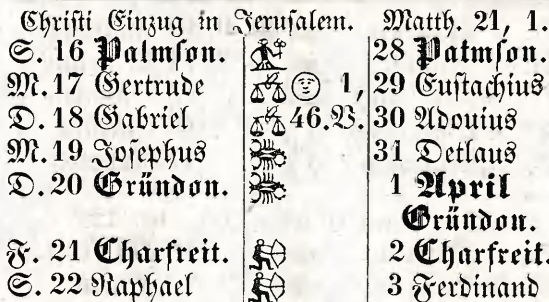 Christi Einzug in Jerusalem. Matth. 21, 1.
S. 16 Palmson. 28 Patmson.
M. 17 Gertrude 1, 29 Eustachius
D. 18 Gabriel 46. V. 30 Adouius
M. 19 Josephus 31 Detlaus
D. 20 Gründon. 1 April
Gründon.
F. 21 Charfreit. 2 Charfreit.
S. 22 Raphael 3 Ferdinand